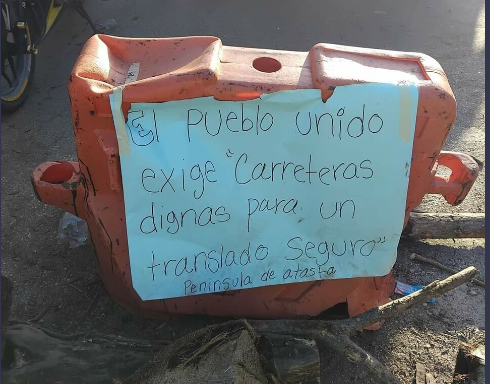 El Pueblo unido
exige "Carreteras
dignas para un
translado Seguro"
Peninsula de atasta